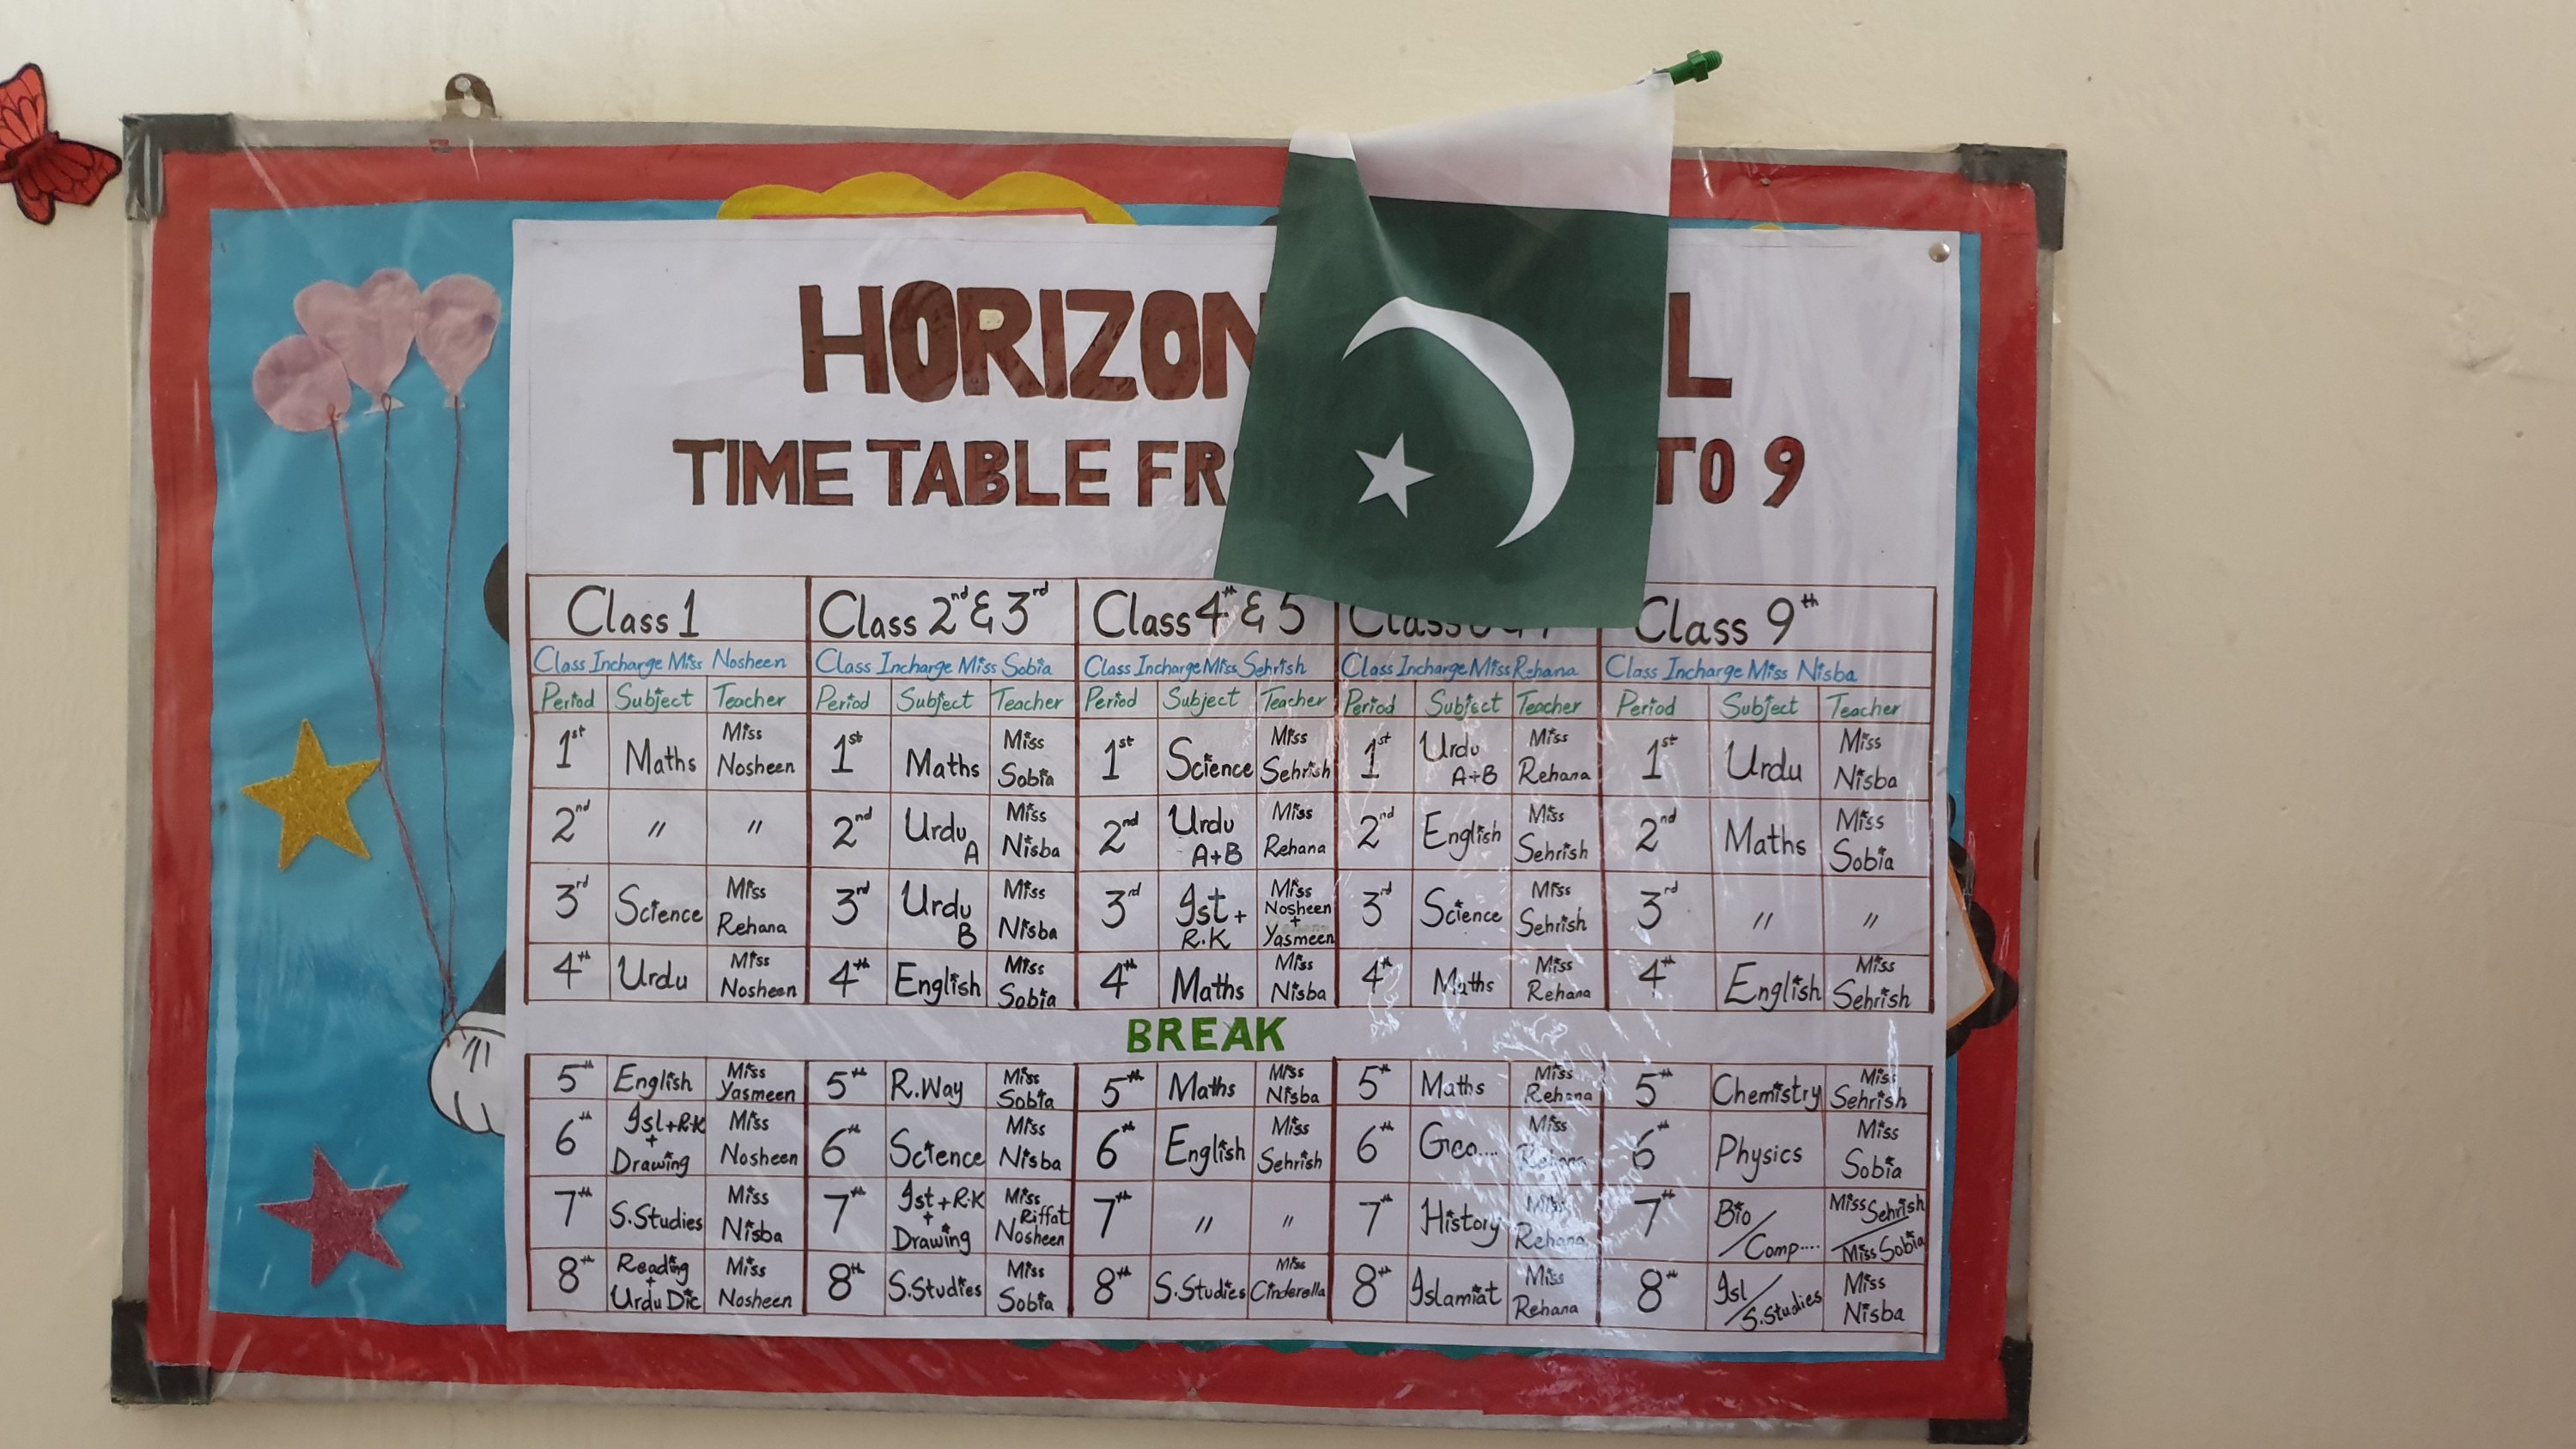 HORIZON L
TIME TABLE TO 9
Class 1 Class 2nd & 3rd Class 4th & 5 Class Class 9th
Class Incharge Miss Nosheen Class Incharge Miss Sobia Class Incharge Miss Sehrish Class Incharge Miss Rehana Class Incharge Miss Nisba
Period Subject Teacher Period Subject Teacher Period Subject Teacher Period Subject Teacher Period Subject Teacher
1st Maths Miss Nosheen 1st Maths Miss Sobia 1st Science Miss Sehrish 1st Urdu A+B Miss Rehana 1st Urdu Miss Nisba
2nd " " 2nd Urdu A Miss Nisba 2nd Urdu A+B Miss Rehana 2nd English Miss Sehrish 2nd Maths Miss Sobia
3rd Science Miss Rehana 3rd Urdu B Miss Nisba 3rd Ist + R.K Miss Nosheen + Yasmeen 3rd Science Miss Sehrish 3rd " "
4th Urdu Miss Nosheen 4th English Miss Sobia 4th Maths Miss Nisba 4th Maths Miss Rehana 4th English Miss Sehrish
BREAK
5th English Miss Yasmeen 5th R.Way Miss Sobia 5th Maths Miss Nisba 5th Maths Miss Rehana 5th Chemistry Miss Sehrish
6th Isl+R.K + Drawing Miss Nosheen 6th Science Miss Nisba 6th English Miss Sehrish 6th Geo.... Miss Rehana 6th Physics Miss Sobia
7th S.Studies Miss Nisba 7th Ist+R.K + Drawing Miss Riffat Nosheen 7th " " 7th History Miss Rehana 7th Bio / Comp.... Miss Sehrish / Miss Sobia
8th Reading + Urdu Dic Miss Nosheen 8th S.Studies Miss Sobia 8th S.Studies Miss Cinderella 8th Islamiat Miss Rehana 8th Isl / S.Studies Miss Nisba